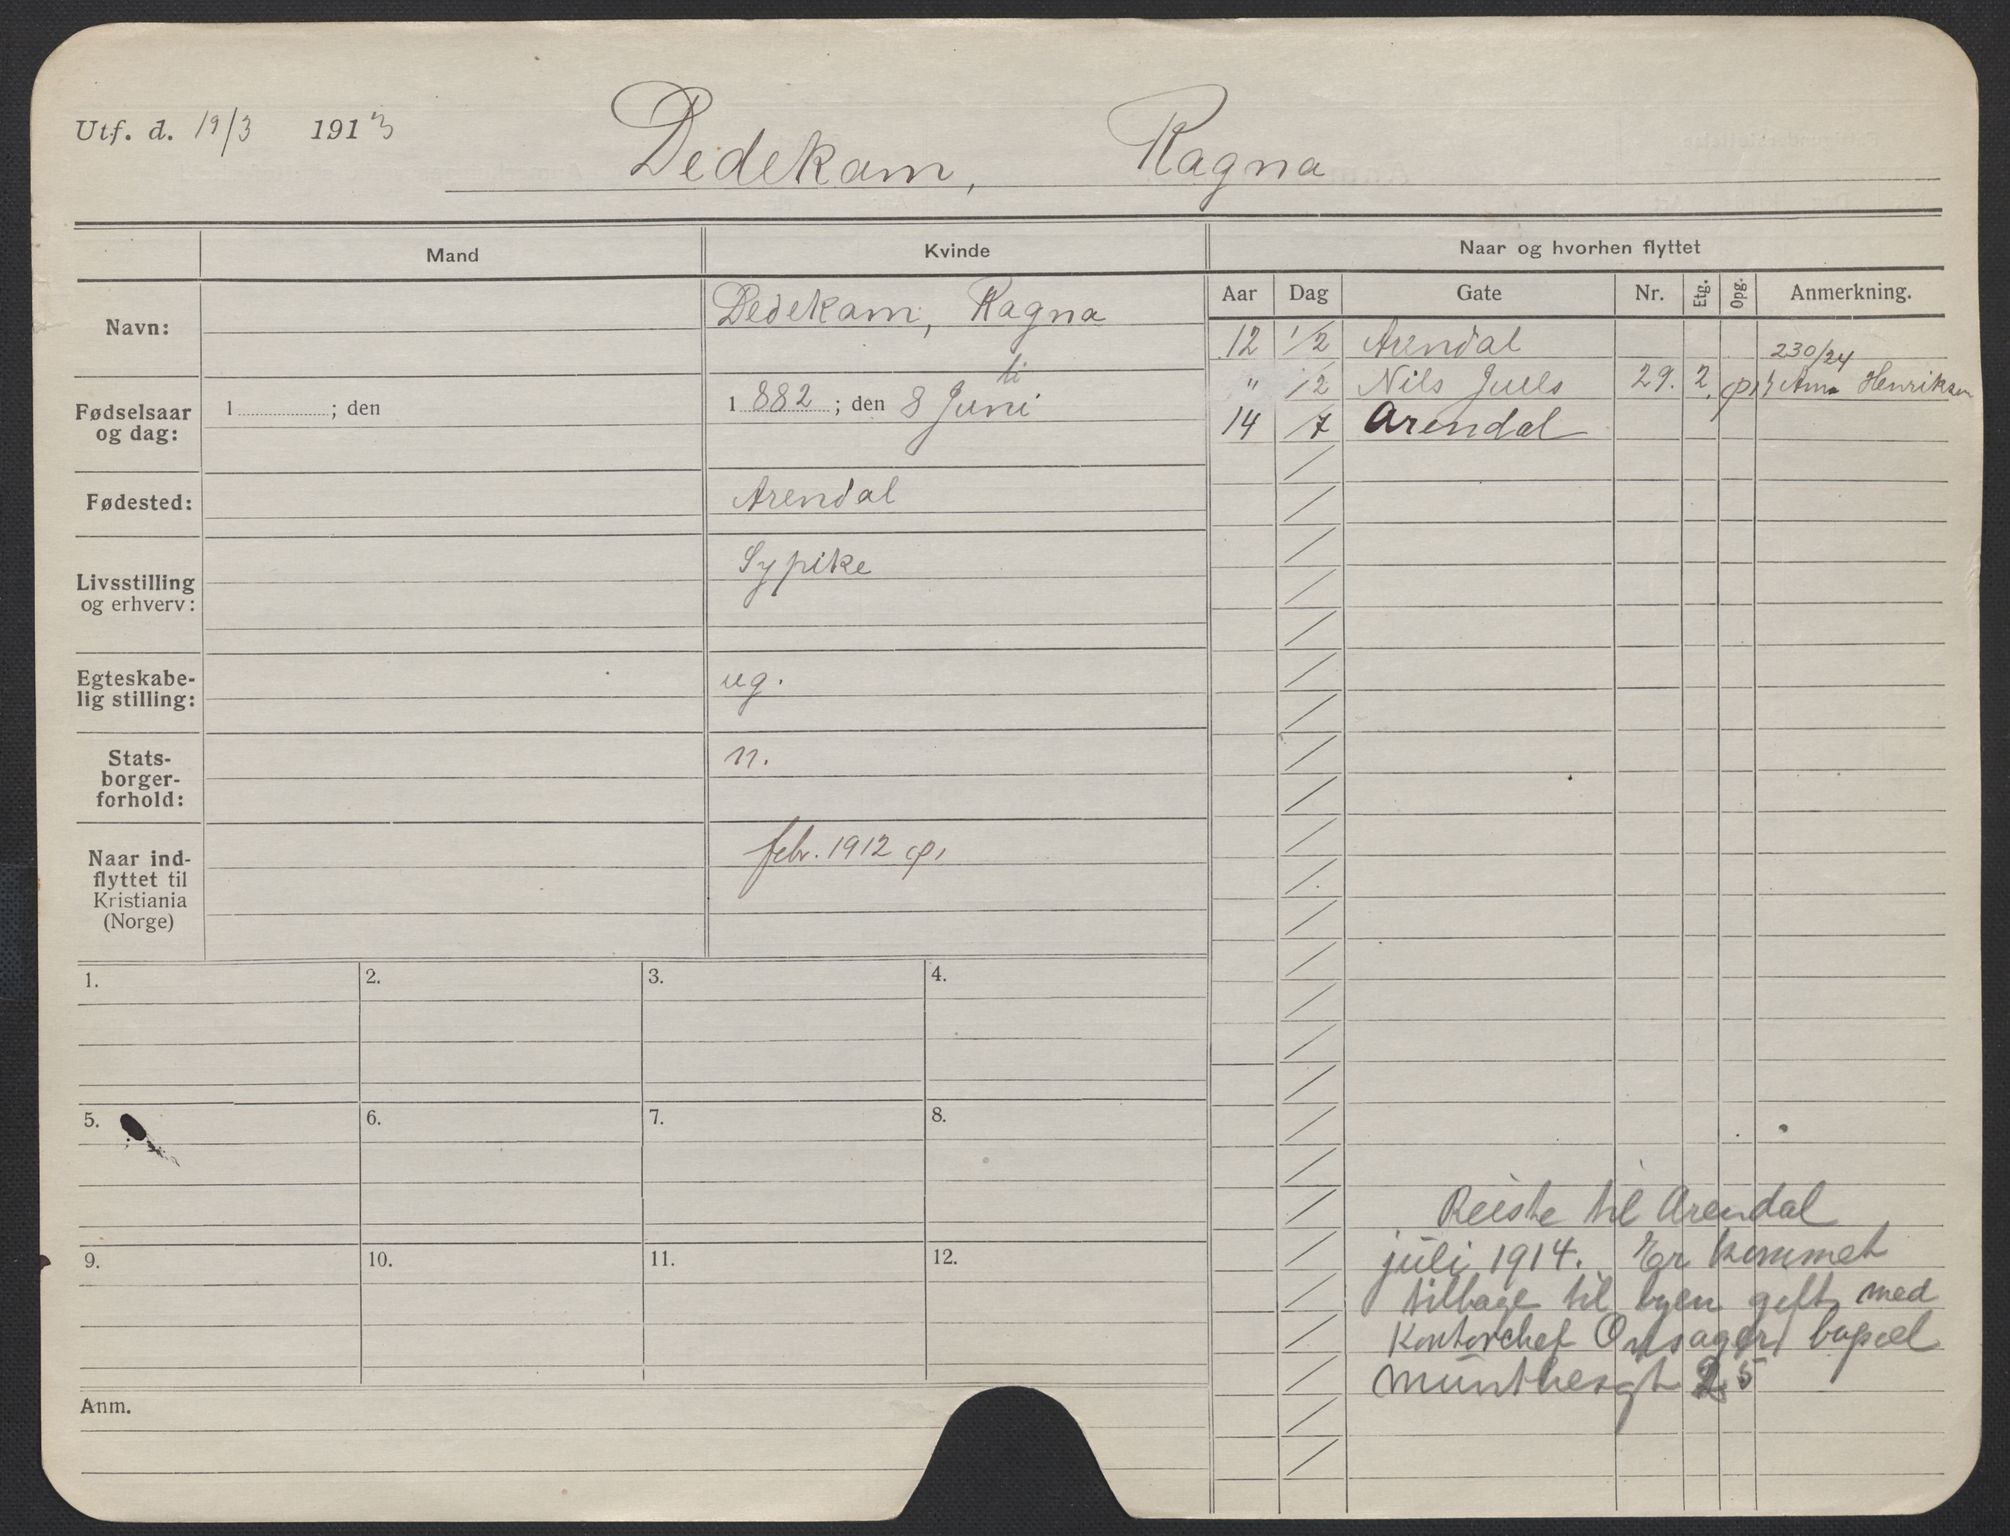 Utf. d. 19/3 1913
Dedekam, Ragna
Mand
Kvinde
Naar og hvorhen flyttet
Aar Dag Gate Nr. Etg. Opg. Anmerkning.
Navn:
Dedekam, Ragna
Fødselsaar
og dag:
1 ; den
1 882 ; den 8 Juni
li
Fødested:
Arendal
Livsstilling
og erhverv:
Sypike
Egteskabe-
lig stilling:
ug.
Stats-
borger-
forhold:
n.
Naar ind-
flyttet til
Kristiania
(Norge)
febr. 1912
12 1/2 Arendal 230/24
" 12 Nils Juels 29. 2. Henriksen
14 /7 Arendal
1. 2. 3. 4.
5. 6. 7. 8.
9. 10. 11. 12.
Anm.
Reiste til Arendal
juli 1914. Er kommet
tilbage til byen gift med
Kontorchef Onsager, bopæl
Munthesgt 25